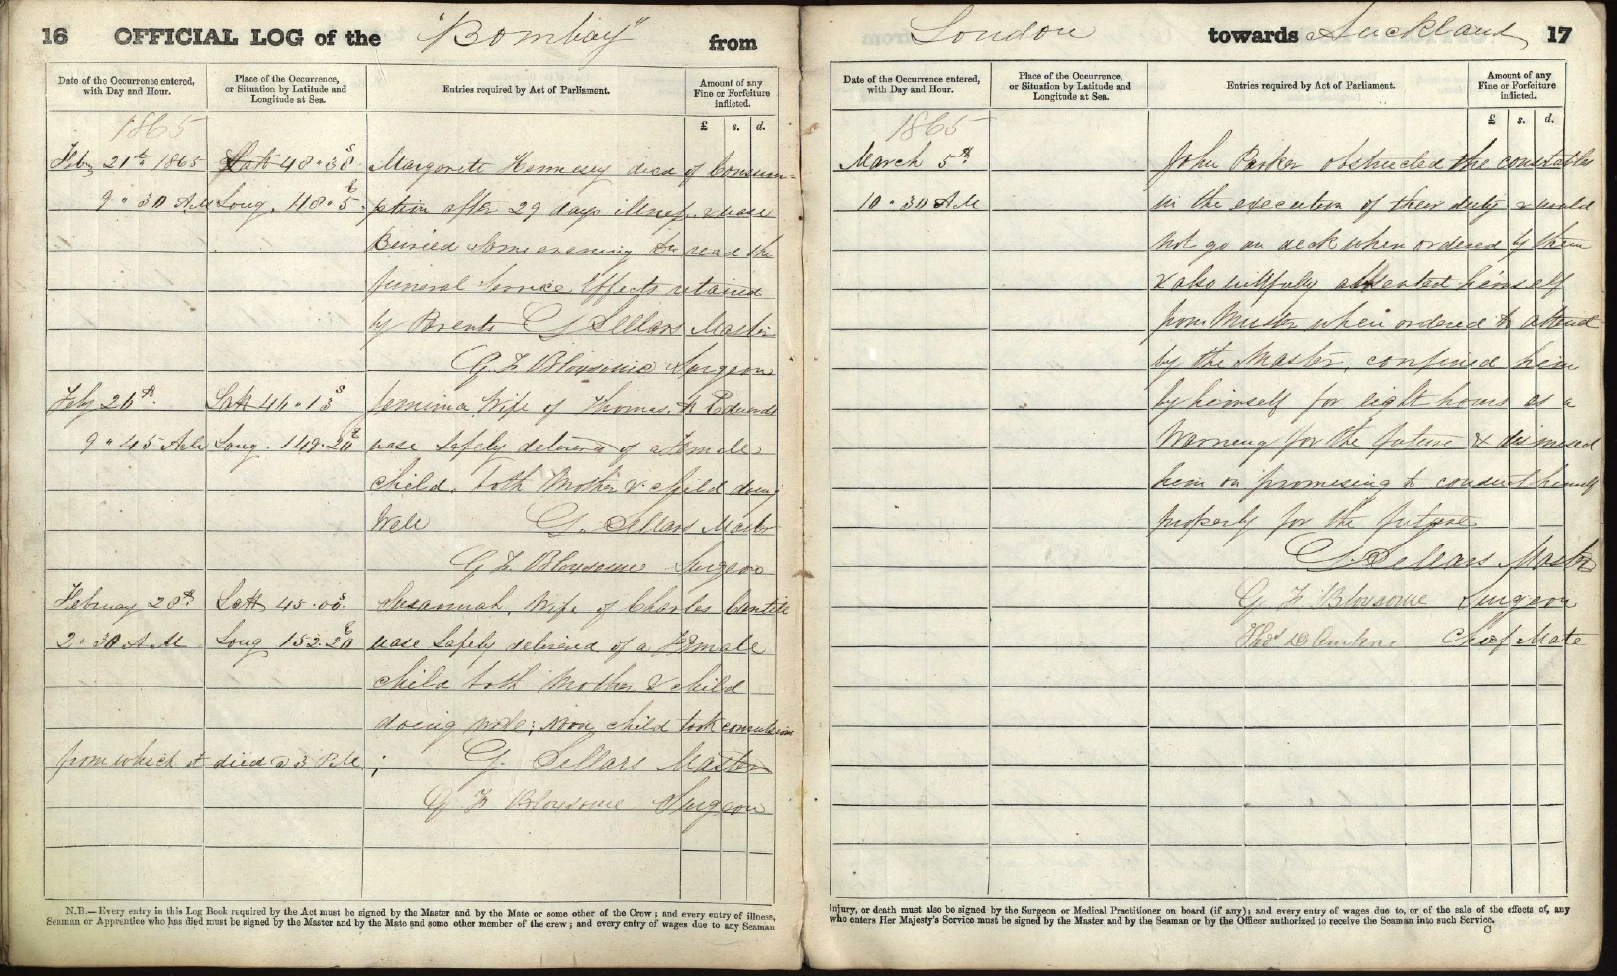 16 OFFICIAL LOG of the "Bombay" from
Date of the Occurrense entered, with Day and Hour.
Place of the Occurrence, or Situation by Latitude and Longitude at Sea.
Entries required by Act of Parliament.
Amount of any Fine or Forfeiture inflicted.
£ s. d.
1865
Feby 21st 1865 Latt 48·38 S Margorett Hennesey died of Consum-
9·30 AM Long. 118·5 E ption after 29 days illness. & was
Buried same evening I read the
funeral Service Effects retained
by Parents G Sellars Master
G. F. Bloxsome Surgeon
Feby 26th. Latt 46·13 S Jemima, Wife of Thomas Edwards
9·45 AM Long. 149·20 E was Safely delivered of a Female
child. both Mother & child doing
Well G. Sellars Master
G F Bloxsome Surgeon
February 28th. Latt 45·00 S Susannah, Wife of Charles Gentile
2·30 A.M Long 153·20 E was Safely delivered of a Female
child both Mother & child
doing well; Noon child took convulsion
from which it died @ 3 P.M ; G. Sellars Master
G F Bloxsome Surgeon
N.B.—Every entry in this Log Book required by the Act must be signed by the Master and by the Mate or some other of the Crew; and every entry of illness,
Seaman or Apprentice who has died must be signed by the Master and by the Mate and some other member of the crew; and every entry of wages due to any Seaman
London towards Auckland 17
Date of the Occurrence entered, with Day and Hour.
Place of the Occurrence, or Situation by Latitude and Longitude at Sea.
Entries required by Act of Parliament.
Amount of any Fine or Forfeiture inflicted.
£ s. d.
1865
March 5th. John Parker obstructed the constables
10·30 AM in the execution of their duty & would
not go on deck when ordered by them
& also willfully absented himself
from Muster when ordered to attend
by the Master, confined him
by himself for eight hours as a
Warning for the future & dismissed
him on promising to conduct himself
properly for the future
G Sellars Master
G F Bloxsome Surgeon
Chief Mate
injury, or death must also be signed by the Surgeon or Medical Practitioner on board (if any); and every entry of wages due to, or of the sale of the effects of, any
who enters Her Majesty's Service must be signed by the Master and by the Seaman or by the Officer authorized to receive the Seaman into such Service.
C